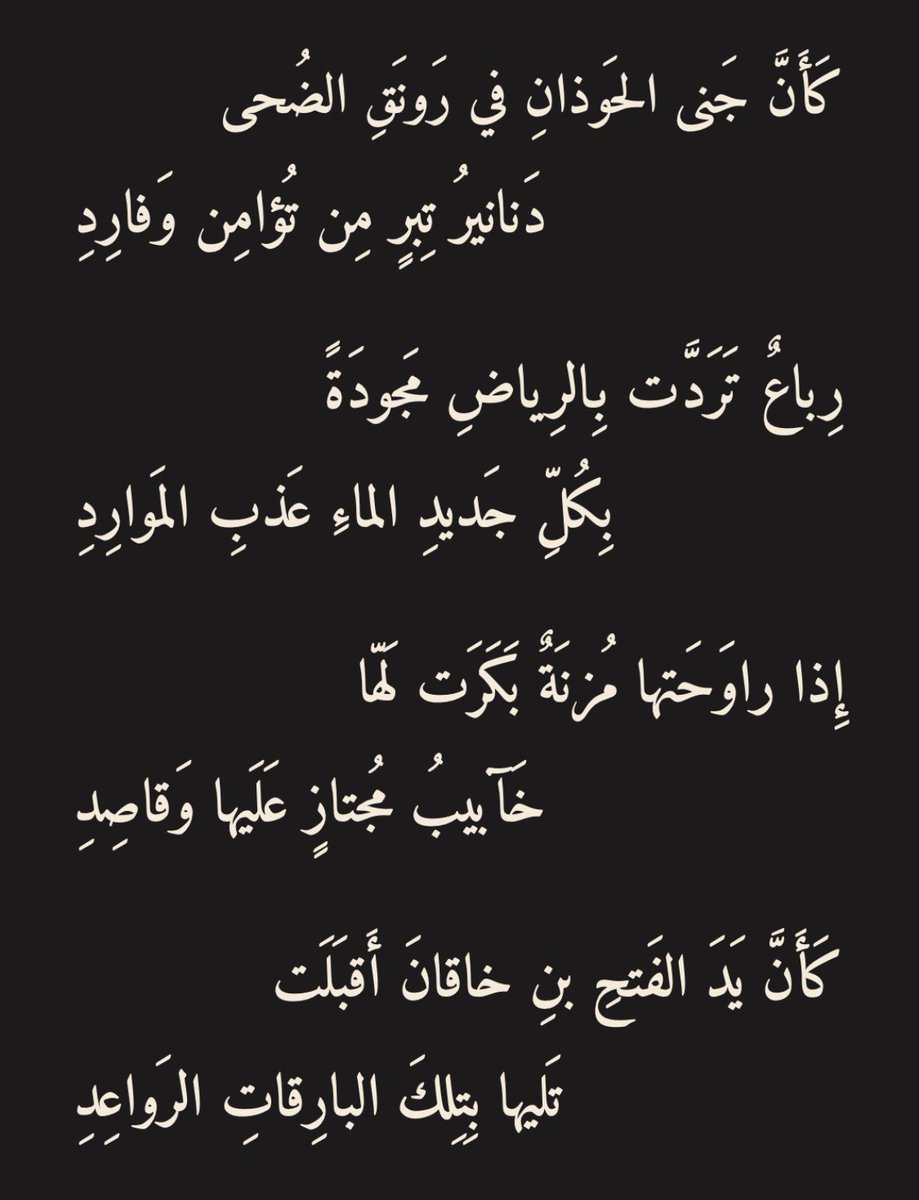 كَأَنَّ جَنى الحَوذانِ في رَونَقِ الضُحى
دَنانيرُ تِبرٍ مِن تُؤامِن وَفارِدِ
رِباعٌ تَرَدَّت بِالرِياضِ مَجودَةً
بِكُلِّ جَديدِ الماءِ عَذبِ المَوارِدِ
إِذا راوَحَتها مُزنَةٌ بَكَرَت لَهّا
خَآبيبُ مُجتازٍ عَلَيها وَقاصِدِ
كَأَنَّ يَدَ الفَتحِ بنِ خاقانَ أَقبَلَت
تَليها بِتِلِكَ البارِقاتِ الرَواعِدِ